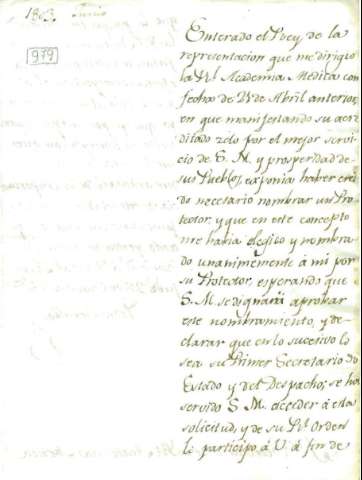 1803. Junio
979
Enterado el Rey, de la
representacion que me dirigio
la Rl. Academia Medica con
fecha de 25 de Abril anterior,
en que manifestando su acre
ditado zelo por el mejor servi
cio de S. M. y prosperidad de
sus Pueblos, exponia haber crei
do necesario nombrar un Pro
tector, y que en este concepto
me habia elegido y nombra
do unanimemente á mi por
su Protector, esperando que
S. M. se dignará aprobar
este nombramiento, y de-
clarar que en lo sucesivo lo
sea su Primer Secretario de
Estado y del Despacho; se ha
servido S. M. acceder á esta
solicitud, y de su Rl. Orden
le participo á V. á fin de